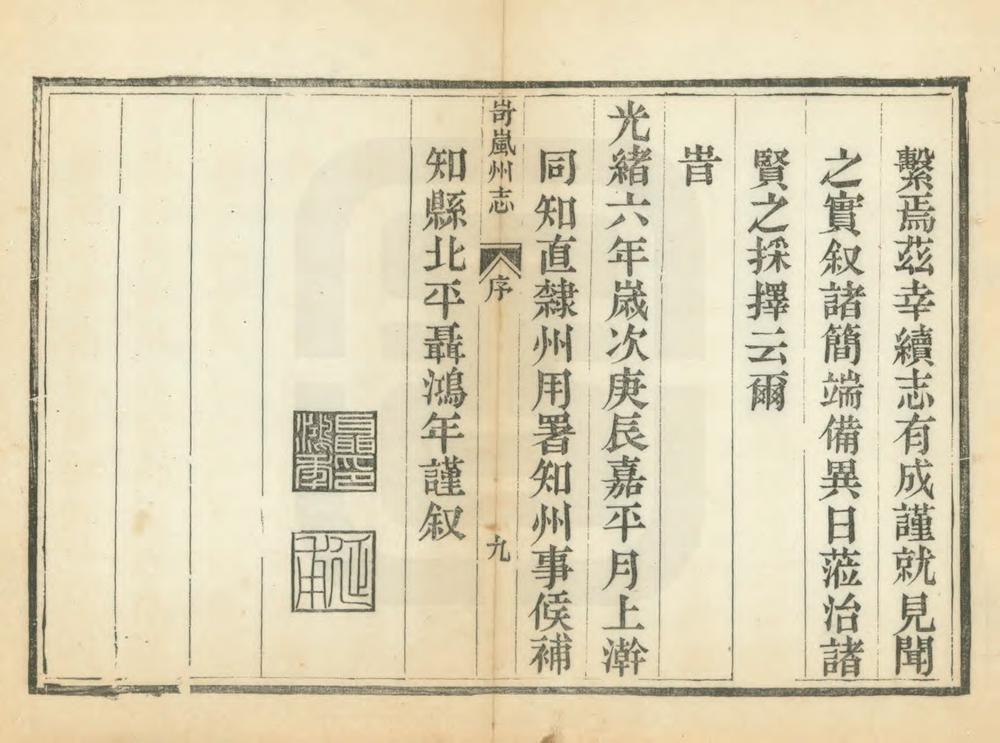 繫焉茲幸續志有成謹就見聞
之實叙諸簡端備異日蒞治諸
賢之採擇云爾
旹
光緒六年嵗次庚辰嘉平月上澣
岢嵐州志
序
九
同知直隸州用署知州事候補
知縣北平聶鴻年謹叙
聶鴻年
延甫